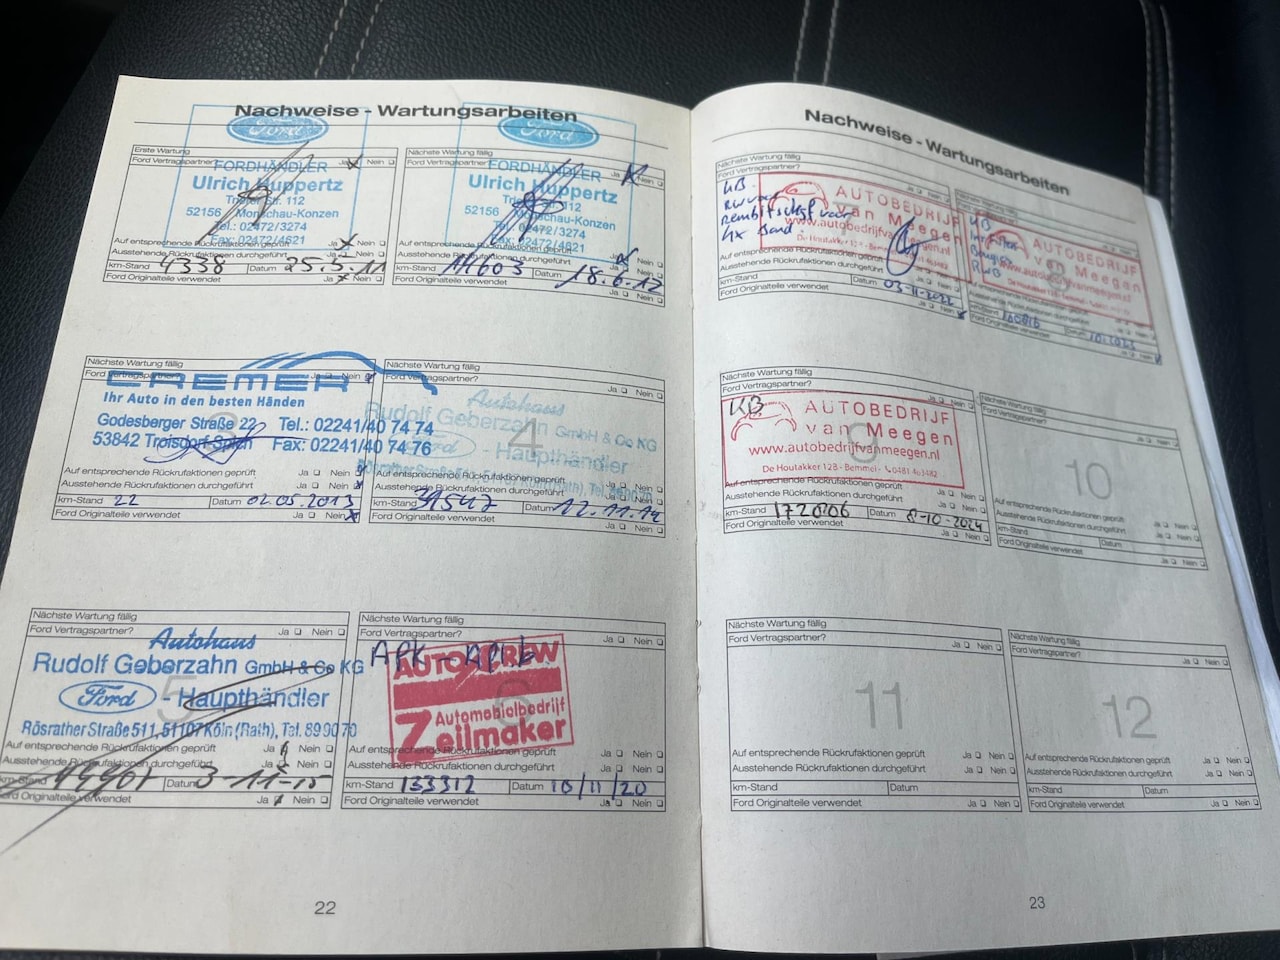 Nachweise - Wartungsarbeiten
Erste Wartung
Ford Vertragspartner? Ja Nein
Ford
FORDHÄNDLER
Ulrich Huppertz
Trierer Str. 112
52156 Monschau-Konzen
Tel.: 02472/3274
Fax: 02472/4621
Auf entsprechende Rückrufaktionen geprüft Ja Nein
Ausstehende Rückrufaktionen durchgeführt Ja Nein
km-Stand 4338 Datum 25.5.11
Ford Originalteile verwendet Ja Nein
Nächste Wartung fällig
Ford Vertragspartner? Ja Nein
Ford
FORDHÄNDLER
Ulrich Huppertz
112
52156 Monschau-Konzen
Tel.: 02472/3274
Fax: 02472/4621
Auf entsprechende Rückrufaktionen geprüft
Ausstehende Rückrufaktionen durchgeführt
km-Stand 11603 Datum 18.6.12
Ford Originalteile verwendet Ja Nein
Nächste Wartung fällig
Ford Vertragspartner? Ja Nein
CREMER
Ihr Auto in den besten Händen
3
Godesberger Straße 22 Tel.: 02241/40 74 74
53842 Troisdorf-Spich Fax: 02241/40 74 76
Auf entsprechende Rückrufaktionen geprüft Ja Nein
Ausstehende Rückrufaktionen durchgeführt Ja Nein
km-Stand 22 Datum 02.05.2013
Ford Originalteile verwendet Ja Nein
Nächste Wartung fällig
Ford Vertragspartner? Ja Nein
Autohaus
Rudolf Geberzahn GmbH & Co KG
4
Ford - Haupthändler
Rösrather Straße
Auf entsprechende Rückrufaktionen geprüft Ja Nein
Ausstehende Rückrufaktionen durchgeführt Ja Nein
km-Stand 31547 Datum 12.11.14
Ford Originalteile verwendet Ja Nein
Nächste Wartung fällig
Ford Vertragspartner? Ja Nein
Autohaus
Rudolf Geberzahn GmbH & Co KG
5
Ford - Haupthändler
Rösrather Straße 511, 51107 Köln (Rath), Tel. 89 90 70
Auf entsprechende Rückrufaktionen geprüft Ja Nein
Ausstehende Rückrufaktionen durchgeführt Ja Nein
km-Stand Datum 3-11-15
Ford Originalteile verwendet Ja Nein
Nächste Wartung fällig
Ford Vertragspartner? Ja Nein
APK
AUTOCREW
6
Automobielbedrijf
Zeilmaker
Auf entsprechende Rückrufaktionen geprüft Ja Nein
Ausstehende Rückrufaktionen durchgeführt Ja Nein
km-Stand 133312 Datum 10/11/20
Ford Originalteile verwendet Ja Nein
22
Nachweise - Wartungsarbeiten
Nächste Wartung fällig
Ford Vertragspartner? Ja Nein
KB
AUTOBEDRIJF
van Meegen
www.autobedrijfvanmeegen.nl
De Houtakker 12B - Bemmel
Auf entsprechende Rückrufaktionen geprüft
Ausstehende Rückrufaktionen durchgeführt
km-Stand Datum 03-11-2022
Ford Originalteile verwendet Ja Nein
KB
AUTOBEDRIJF
van Meegen
www.autobedrijfvanmeegen.nl
De Houtakker 12B - Bemmel
km-Stand Datum
Ford Originalteile verwendet Ja Nein
Nächste Wartung fällig
Ford Vertragspartner? Ja Nein
KB
9
AUTOBEDRIJF
van Meegen
www.autobedrijfvanmeegen.nl
De Houtakker 12B - Bemmel - 0481 463482
Auf entsprechende Rückrufaktionen geprüft
Ausstehende Rückrufaktionen durchgeführt Ja Nein
km-Stand Datum 8-10-2024
Ford Originalteile verwendet Ja Nein
Nächste Wartung fällig
Ford Vertragspartner? Ja Nein
10
Auf entsprechende Rückrufaktionen geprüft Ja Nein
Ausstehende Rückrufaktionen durchgeführt Ja Nein
km-Stand Datum
Ford Originalteile verwendet Ja Nein
Nächste Wartung fällig
Ford Vertragspartner? Ja Nein
11
Auf entsprechende Rückrufaktionen geprüft Ja Nein
Ausstehende Rückrufaktionen durchgeführt Ja Nein
km-Stand Datum
Ford Originalteile verwendet Ja Nein
Nächste Wartung fällig
Ford Vertragspartner? Ja Nein
12
Auf entsprechende Rückrufaktionen geprüft Ja Nein
Ausstehende Rückrufaktionen durchgeführt Ja Nein
km-Stand Datum
Ford Originalteile verwendet Ja Nein
23